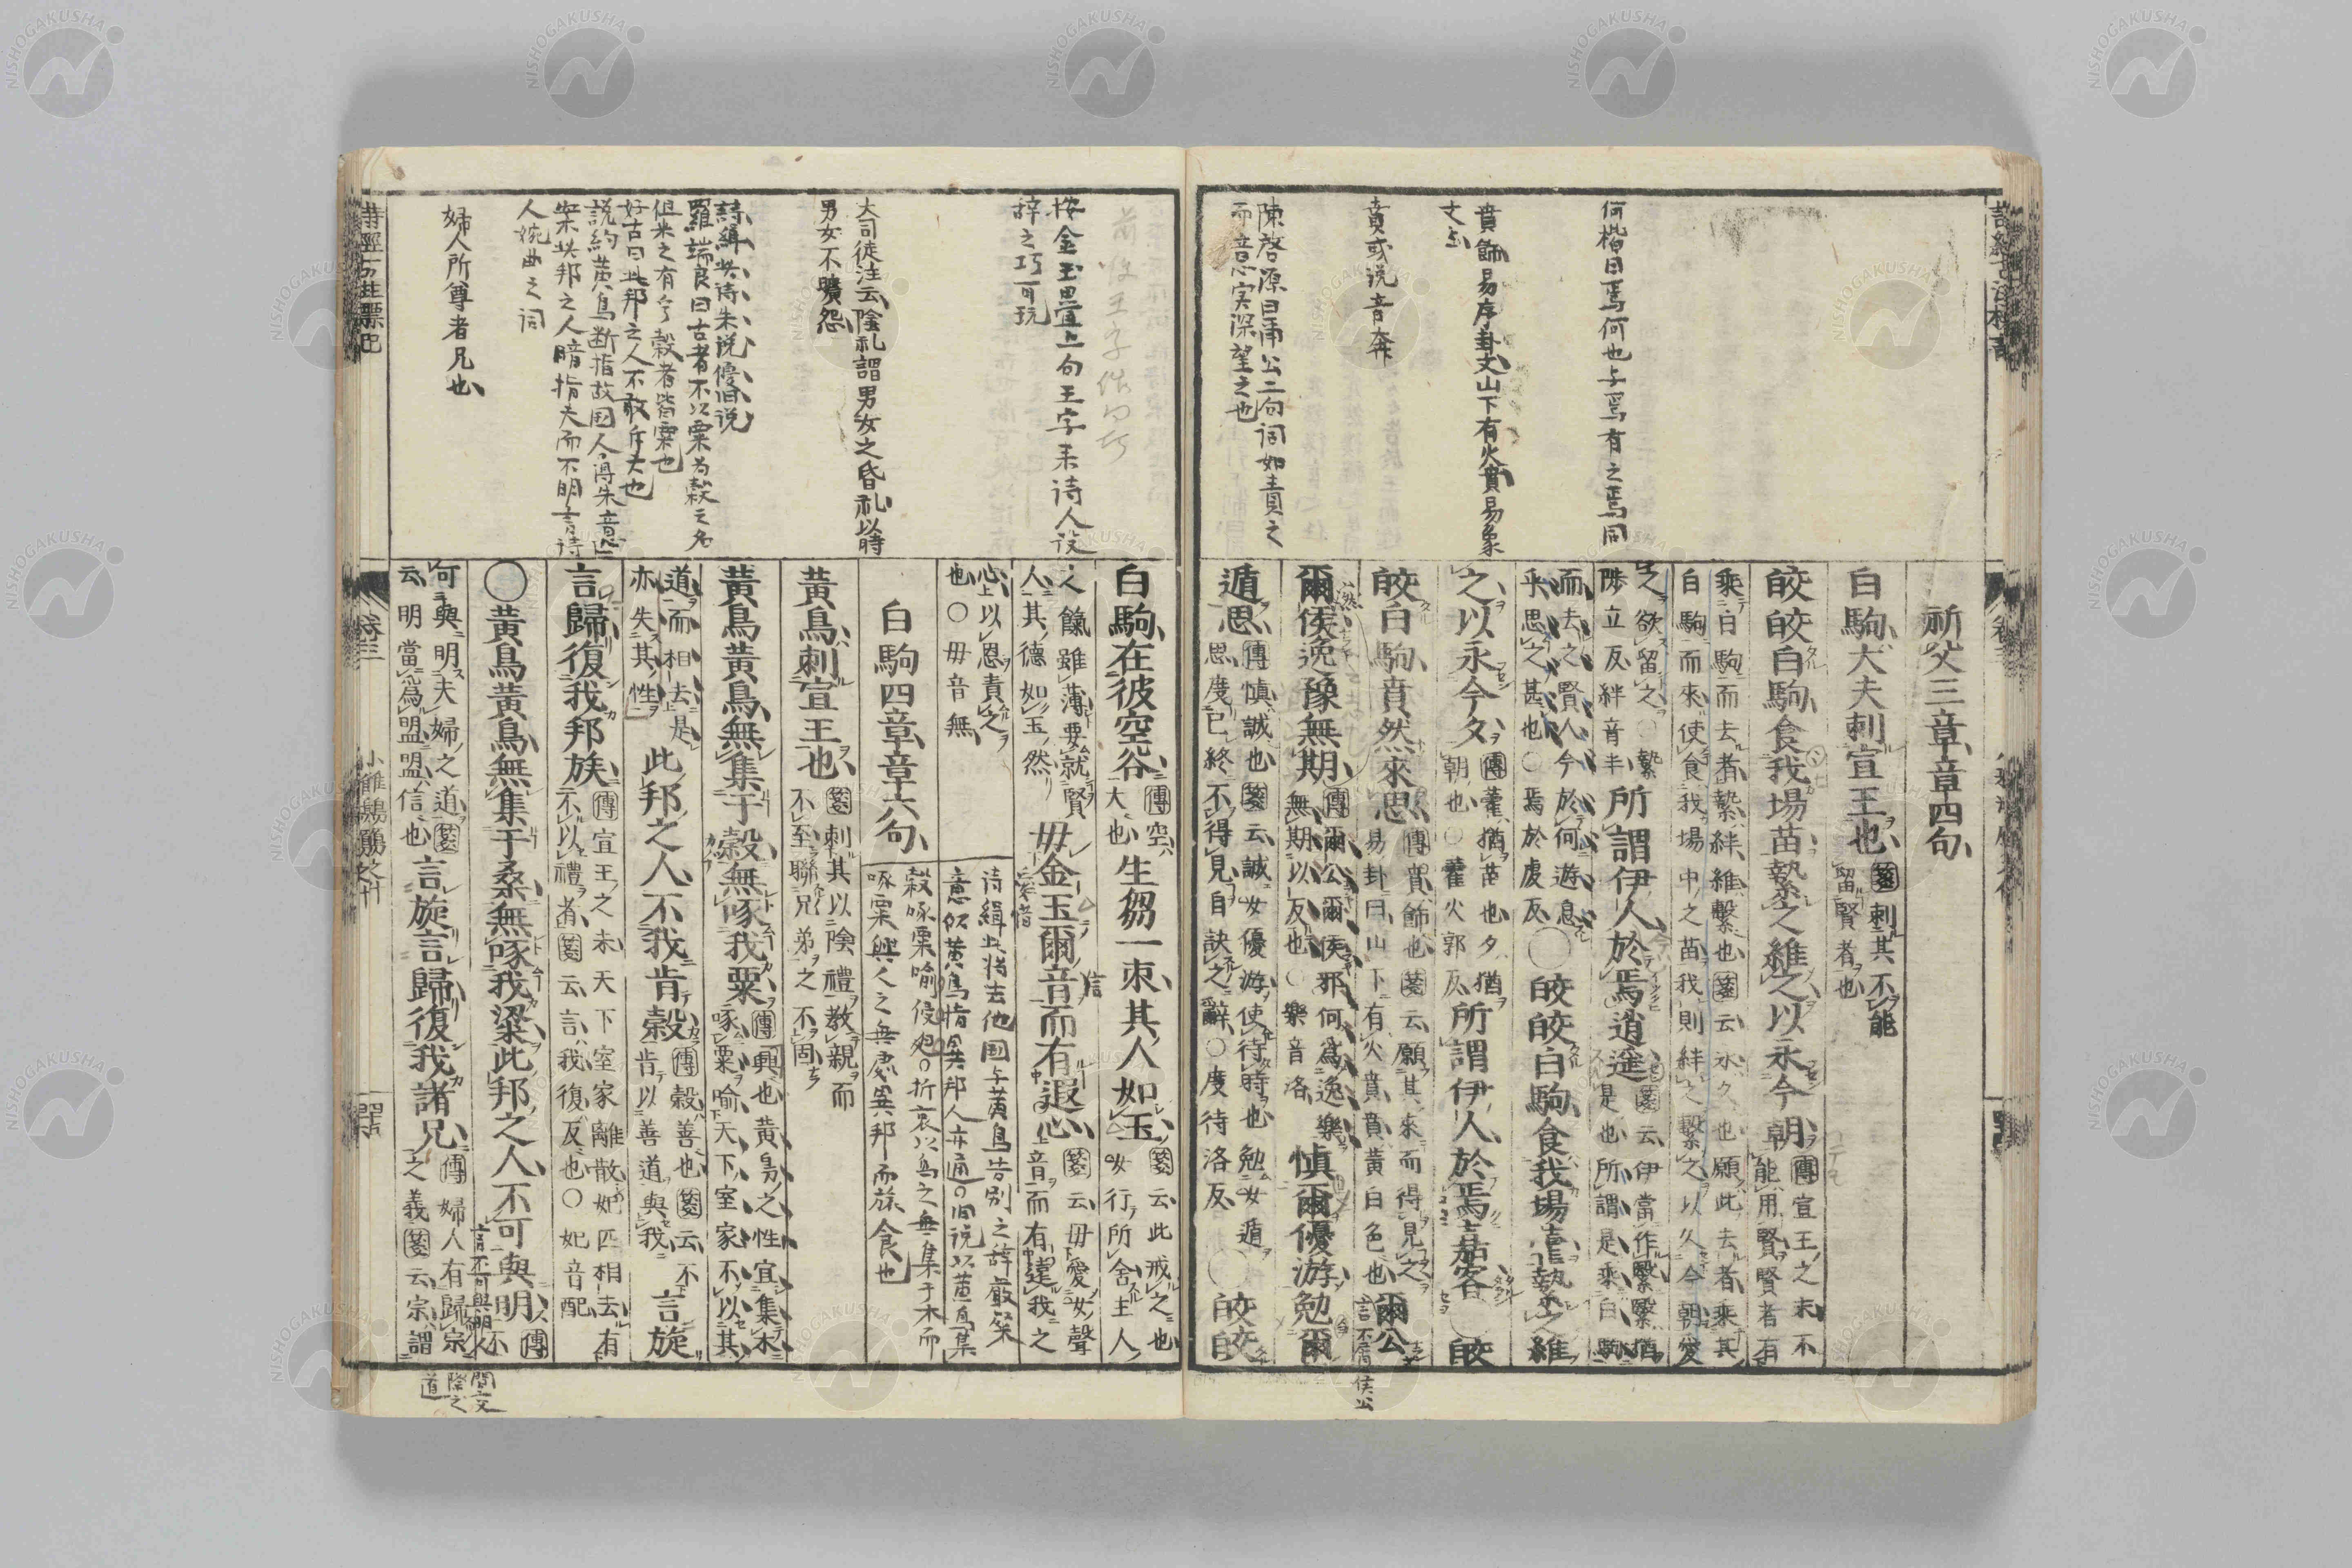 何楷曰焉何也与焉有之焉同
賁飾易序卦文山下有火賁易象
文也
賁或说音奔
陳啓源曰爾公二句词如責之
而意実深望之也
祈父三章章四句
白駒大夫刺宣王也箋刺其不能
留賢者也
皎皎白駒食我場苗縶之維之以永今朝傳宣王之末不
能用賢賢者有
乘白駒而去者縶絆維繫也箋云永久也願此去者乘其
白駒而來使食我場中之苗我則絆之繫之以久今朝愛
之欲留之○縶
陟立反絆音半
所謂伊人於焉逍遙箋云伊當作繄繄猶
是也所謂是乘白駒
而去之賢人今於何遊息
乎思之甚也○焉於虔反
○皎皎白駒食我場藿縶之維
之以永今夕傳藿猶苗也夕猶
朝也○藿火郭反
所謂伊人於焉嘉客○皎
皎白駒賁然來思傳賁飾也箋云願其來而得見之
易卦曰山下有火賁賁黃白色也
爾公
爾侯逸豫無期傳爾公爾侯邪何爲逸樂
無期以反也○樂音洛
慎爾優游勉爾
遁思傳慎誠也箋云誠女優游使待時也勉女遁
思度已終不得見自訣之辭○度待洛反
○皎皎
按金玉爾音上句王字来诗人设
辞之巧可玩
大司徒注云陰礼謂男女之昏礼以時
男女不曠怨
詩緝此诗朱说優旧说
羅端良曰古者不以粟为穀之名
但米之有孚穀者皆粟也
好古曰此邦之人不敢斥夫也
説約黄鳥断指故国人得朱意
案此邦之人暗指夫而不明言诗
人婉曲之词
婦人所尊者兄也
白駒在彼空谷傳空
大也
生芻一束其人如玉箋云此戒之也
女行所舍主人
之餼雖薄要就賢
人其德如玉然
毋金玉爾音而有遐心箋云毋愛女聲
音而有遠我之
心以恩責之
也○毋音無
白駒四章章六句
诗緝此将去他国与黄鳥告别之辞嚴粲
意似黄鳥指異邦人亦通○旧说以黄鳥集
穀啄粟喻侵迫○折哀以鳥之無集于木而
啄粟興人之無處異邦而旅食也
黃鳥刺宣王也箋刺其以陰禮教親而
不至聯兄弟之不固
黃鳥黃鳥無集于穀無啄我粟傳興也黄鳥之性宜集木
啄粟喻天下室家不以其
道而相去是
亦失其性
此邦之人不我肯穀傳穀善也箋云不
肯以善道與我
言旋
言歸復我邦族傳宣王之末天下室家離散妃匹相去有
不以禮者箋云言我復反也○妃音配
○黃鳥黃鳥無集于桑無啄我粱此邦之人不可與明傳
不
言不可與明人
間文
際之
道
可與明夫婦之道箋
云明當爲盟盟信也
言旋言歸復我諸兄傳婦人有歸宗
之義箋云宗謂
卷三
小雅鴻鴈之什